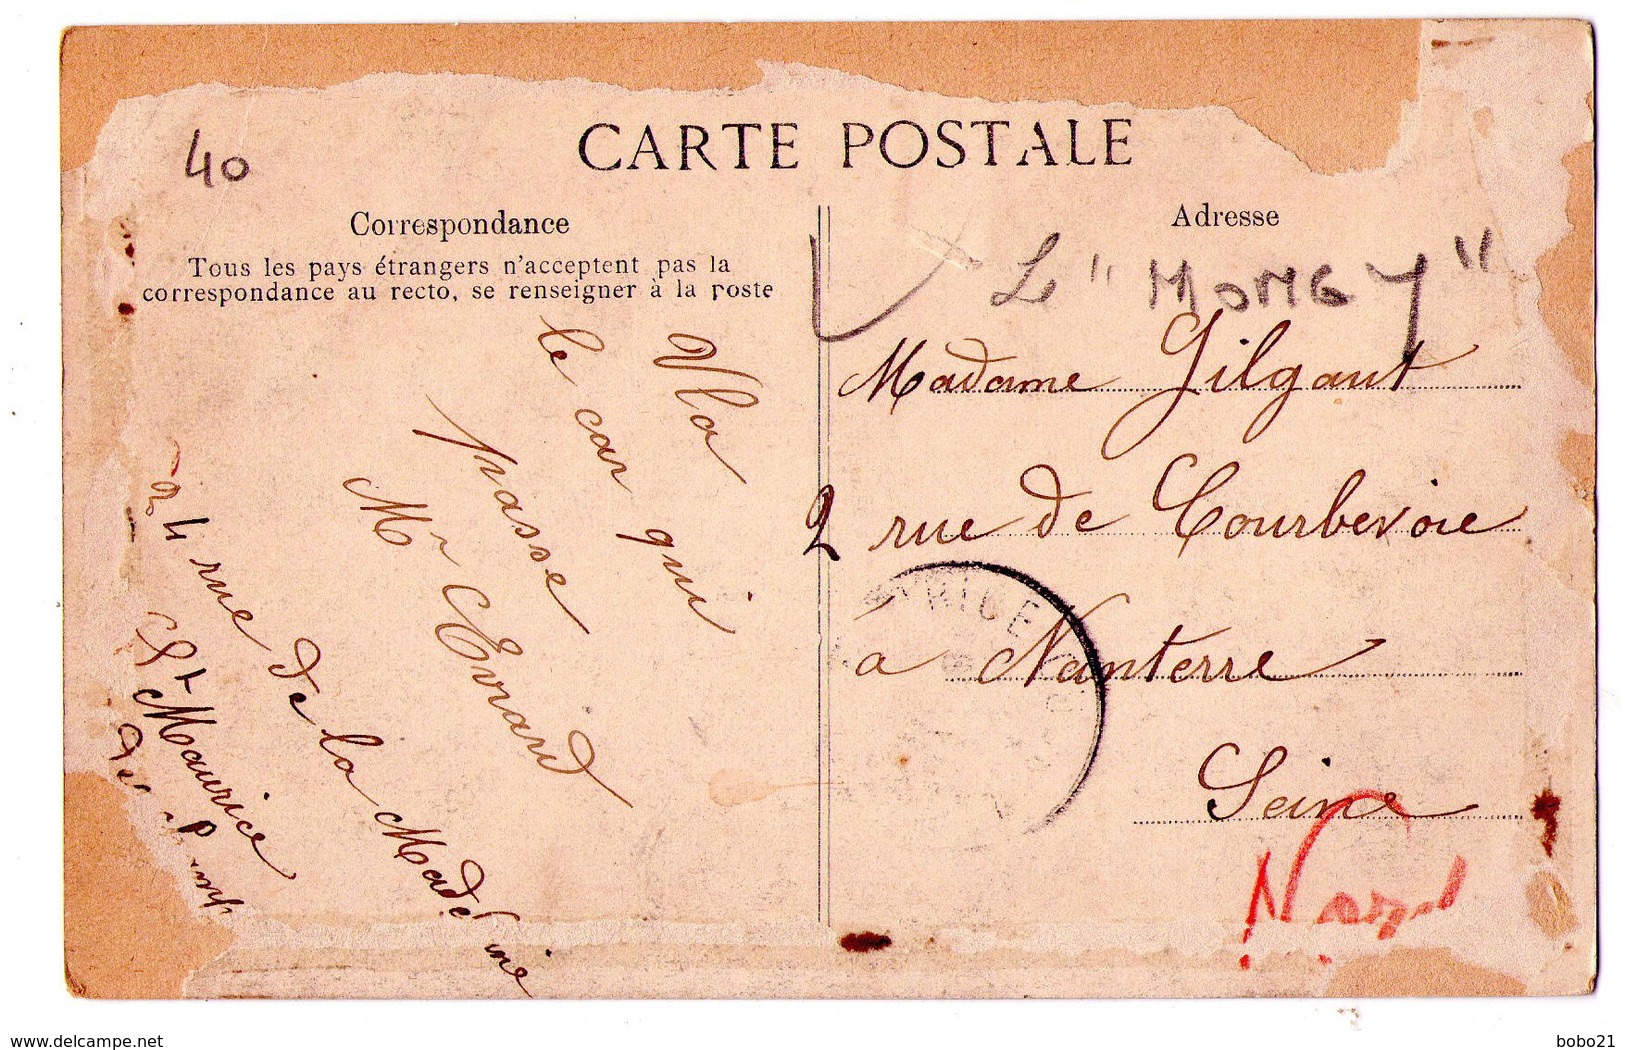 40
CARTE POSTALE
Correspondance
Tous les pays étrangers n'acceptent pas la
correspondance au recto, se renseigner à la poste
Vla
le car qui
passe
Mr Evrard
24 rue de la Madeleine
St Maurice
Adresse
Le "MONGY"
Madame Gilgaut
2 rue de Courbevoie
à Nanterre
Seine
Nord
TRICE
www.delcampe.net
bobo21